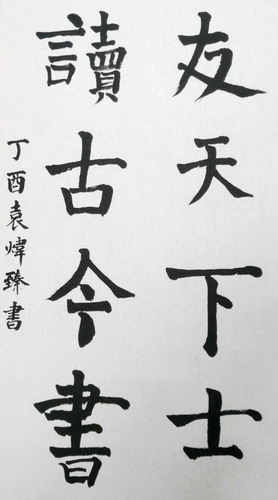 友天下士
讀古今書
丁酉袁煒臻書